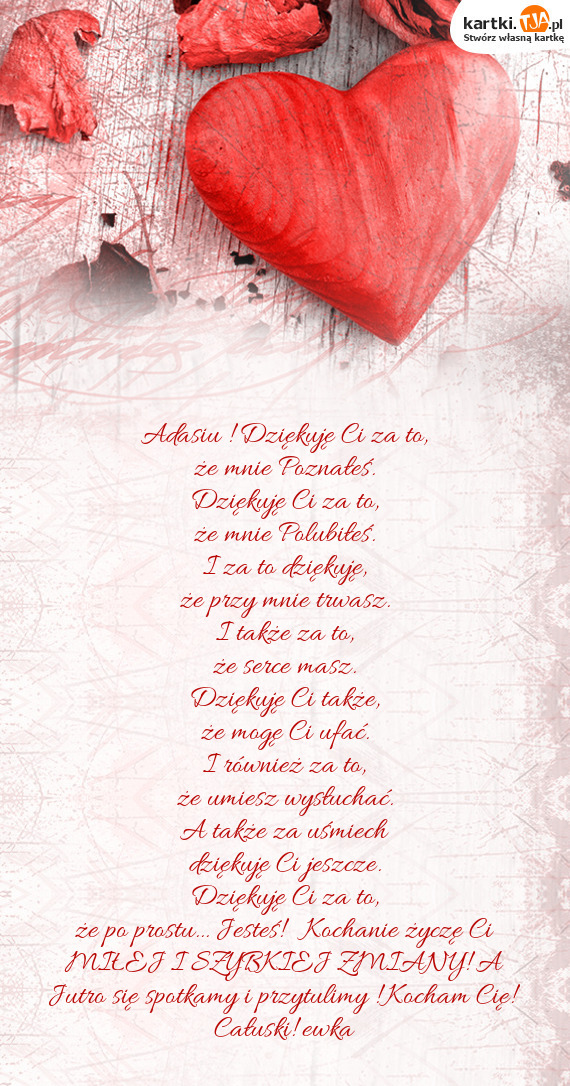 kartki.TJA.pl
Stwórz własną kartkę
Adasiu ! Dziękuję Ci za to,
że mnie Poznałeś.
Dziękuję Ci za to,
że mnie Polubiłeś.
I za to dziękuję,
że przy mnie trwasz.
I także za to,
że serce masz.
Dziękuję Ci także,
że mogę Ci ufać.
I również za to,
że umiesz wysłuchać.
A także za uśmiech
dziękuję Ci jeszcze.
Dziękuję Ci za to,
że po prostu... Jesteś! Kochanie życzę Ci
MIŁEJ I SZYBKIEJ ZMIANY! A
Jutro się spotkamy i przytulimy !Kocham Cię!
Całuski! ewka